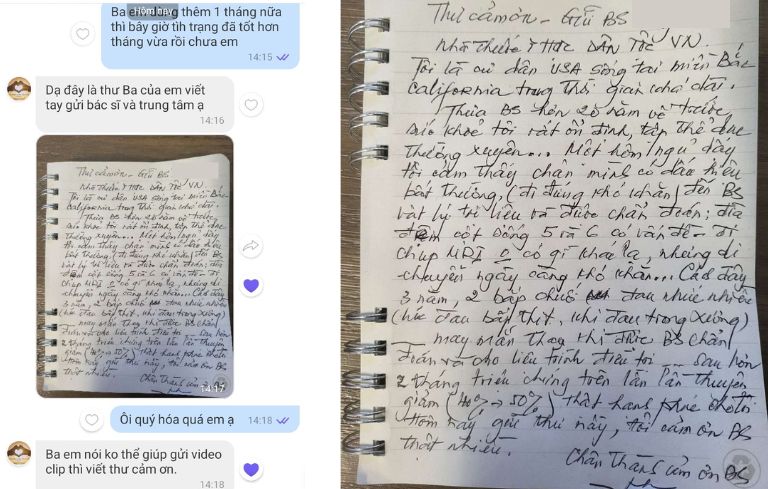 Hôm nay
Ba em dùng thêm 1 tháng nữa
thì bây giờ tih trạng đã tốt hơn
tháng vừa rồi chưa em
14:15
Dạ đây là thư Ba của em viết
tay gửi bác sĩ và trung tâm ạ
14:16
14:17
Ôi quý hóa quá em ạ
14:18
Ba em nói ko thể giúp gửi video
clip thì viết thư cảm ơn.
14:18
Thư cảm ơn - Gửi BS
Nhà Thuốc Y Học DÂN TỘC VN.
Tôi là cư dân USA sống tại miền Bắc
California trong thời gian khá dài.
Thưa BS hơn 20 năm về trước
sức khoẻ tôi rất ổn định, tập thể dục
thường xuyên... Một hôm ngủ dậy
tôi cảm thấy chân mình có dấu hiệu
bất thường, (đi đứng khó khăn) đến BS
vật lý trị liệu và được chẩn đoán: đĩa
đệm cột sống 5 và 6 có vấn đề - đi
chụp MRI có gì khác lạ, nhưng di
chuyển ngày càng khó khăn... Cách đây
3 năm, 2 bắp đau nhức nhiều
(lúc đau bắp thịt, khi đau trong xương)
may mắn thay khi được BS chẩn
đoán và cho liệu trình điều trị ... sau hơn
2 tháng triệu chứng trên lần lần thuyên
giảm (40% → 50%) Thật hạnh phúc
Hôm nay, gửi thư này, tôi cảm ơn BS
thật nhiều.
Chân Thành cảm ơn BS